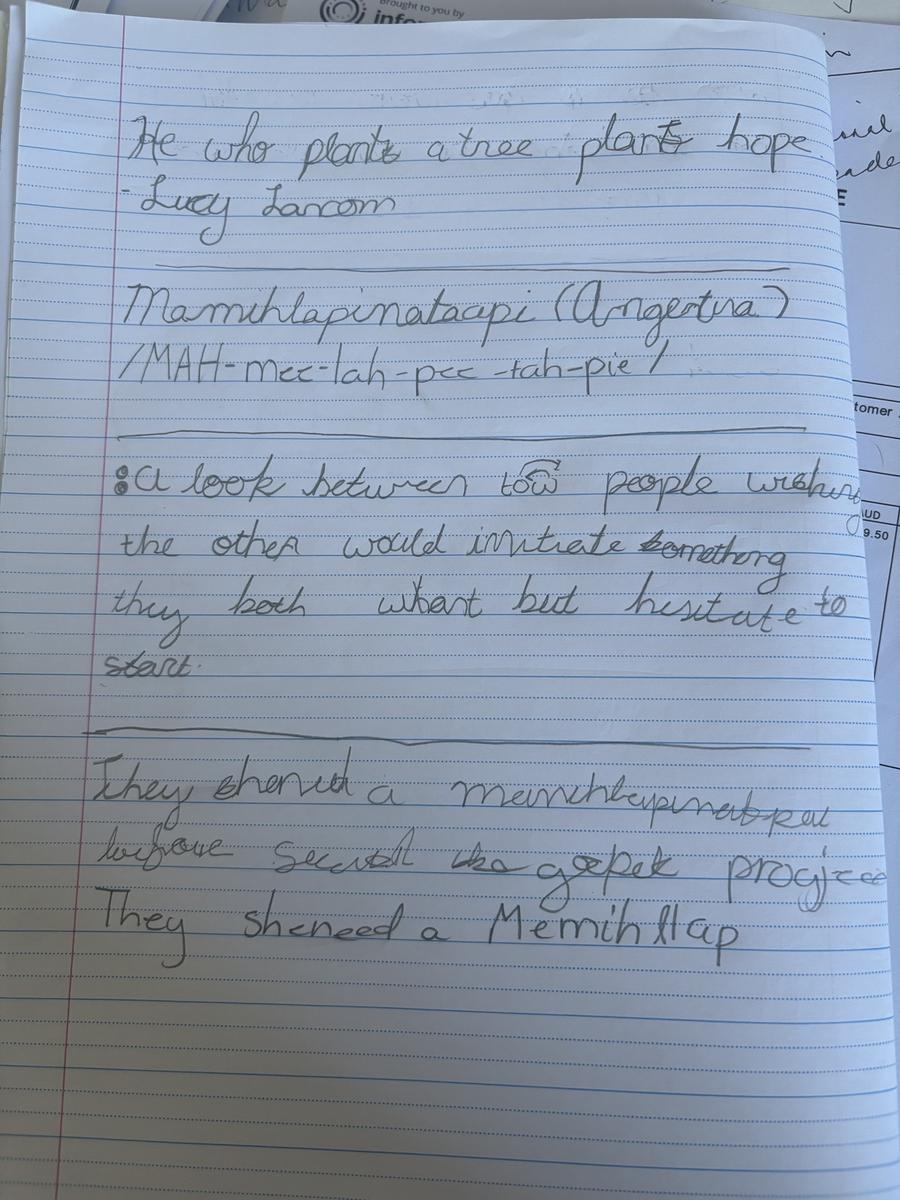 Brought to you by
He who plants a tree plants hope.
- Lucy Larcom
Mamihlapinataapi (Angertina)
/MAH-mee-lah-pee-tah-pie/
:a look between tow people wishing
the other would imitiate something
they both whant but hesitate to
start.
They shared a
before project
They sheneed a Memihllap
tomer
AUD
9.50